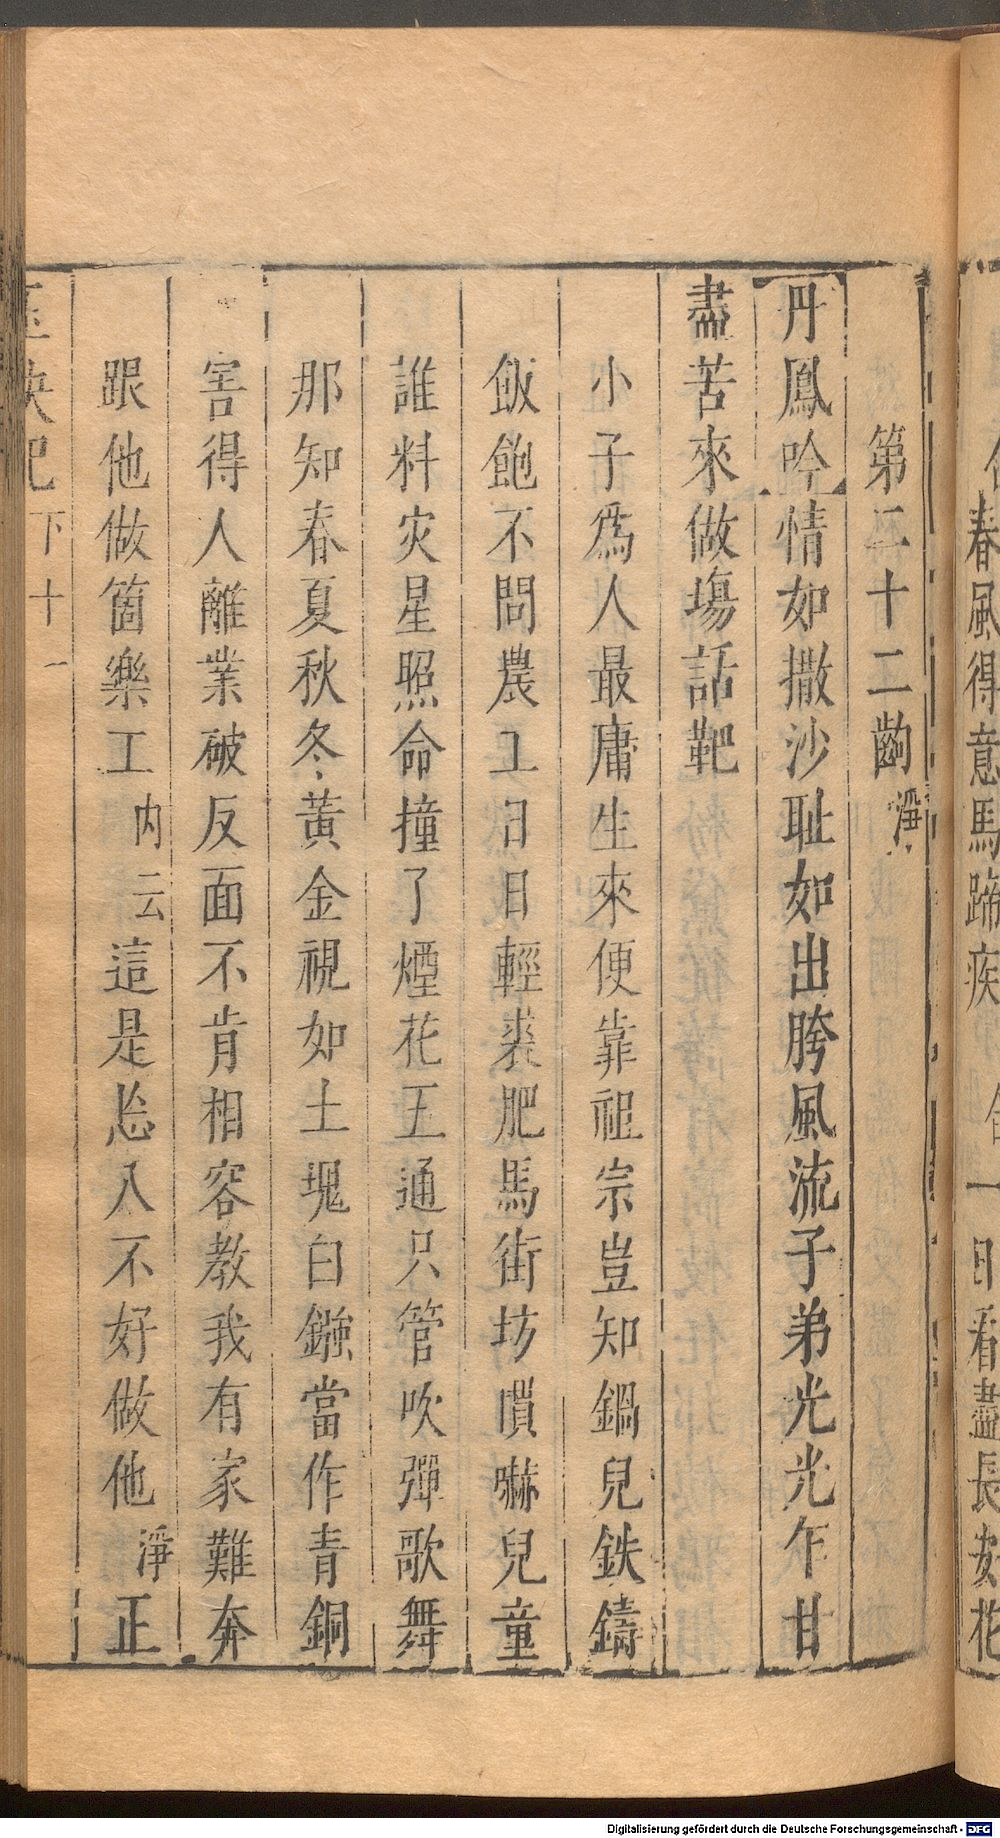 春風得意馬蹄疾 一日看盡長安花
第二十二齣 淨
丹鳳吟情如撒沙耻如出胯風流子弟光光乍甘
盡苦來做塲話靶
小子爲人最庸生來便靠祖宗豈知鍋兒鉄鑄
飯飽不問農工日日輕裘肥馬街坊嗊嚇兒童
誰料灾星照命撞了煙花五通只管吹彈歌舞
那知春夏秋冬黃金視如土塊白鏹當作青銅
害得人離業破反面不肯相容教我有家難奔
跟他做箇樂工 內云 這是恁入不好做他 淨 正
玉玦記 下 十一
Digitalisierung gefördert durch die Deutsche Forschungsgemeinschaft - DFG